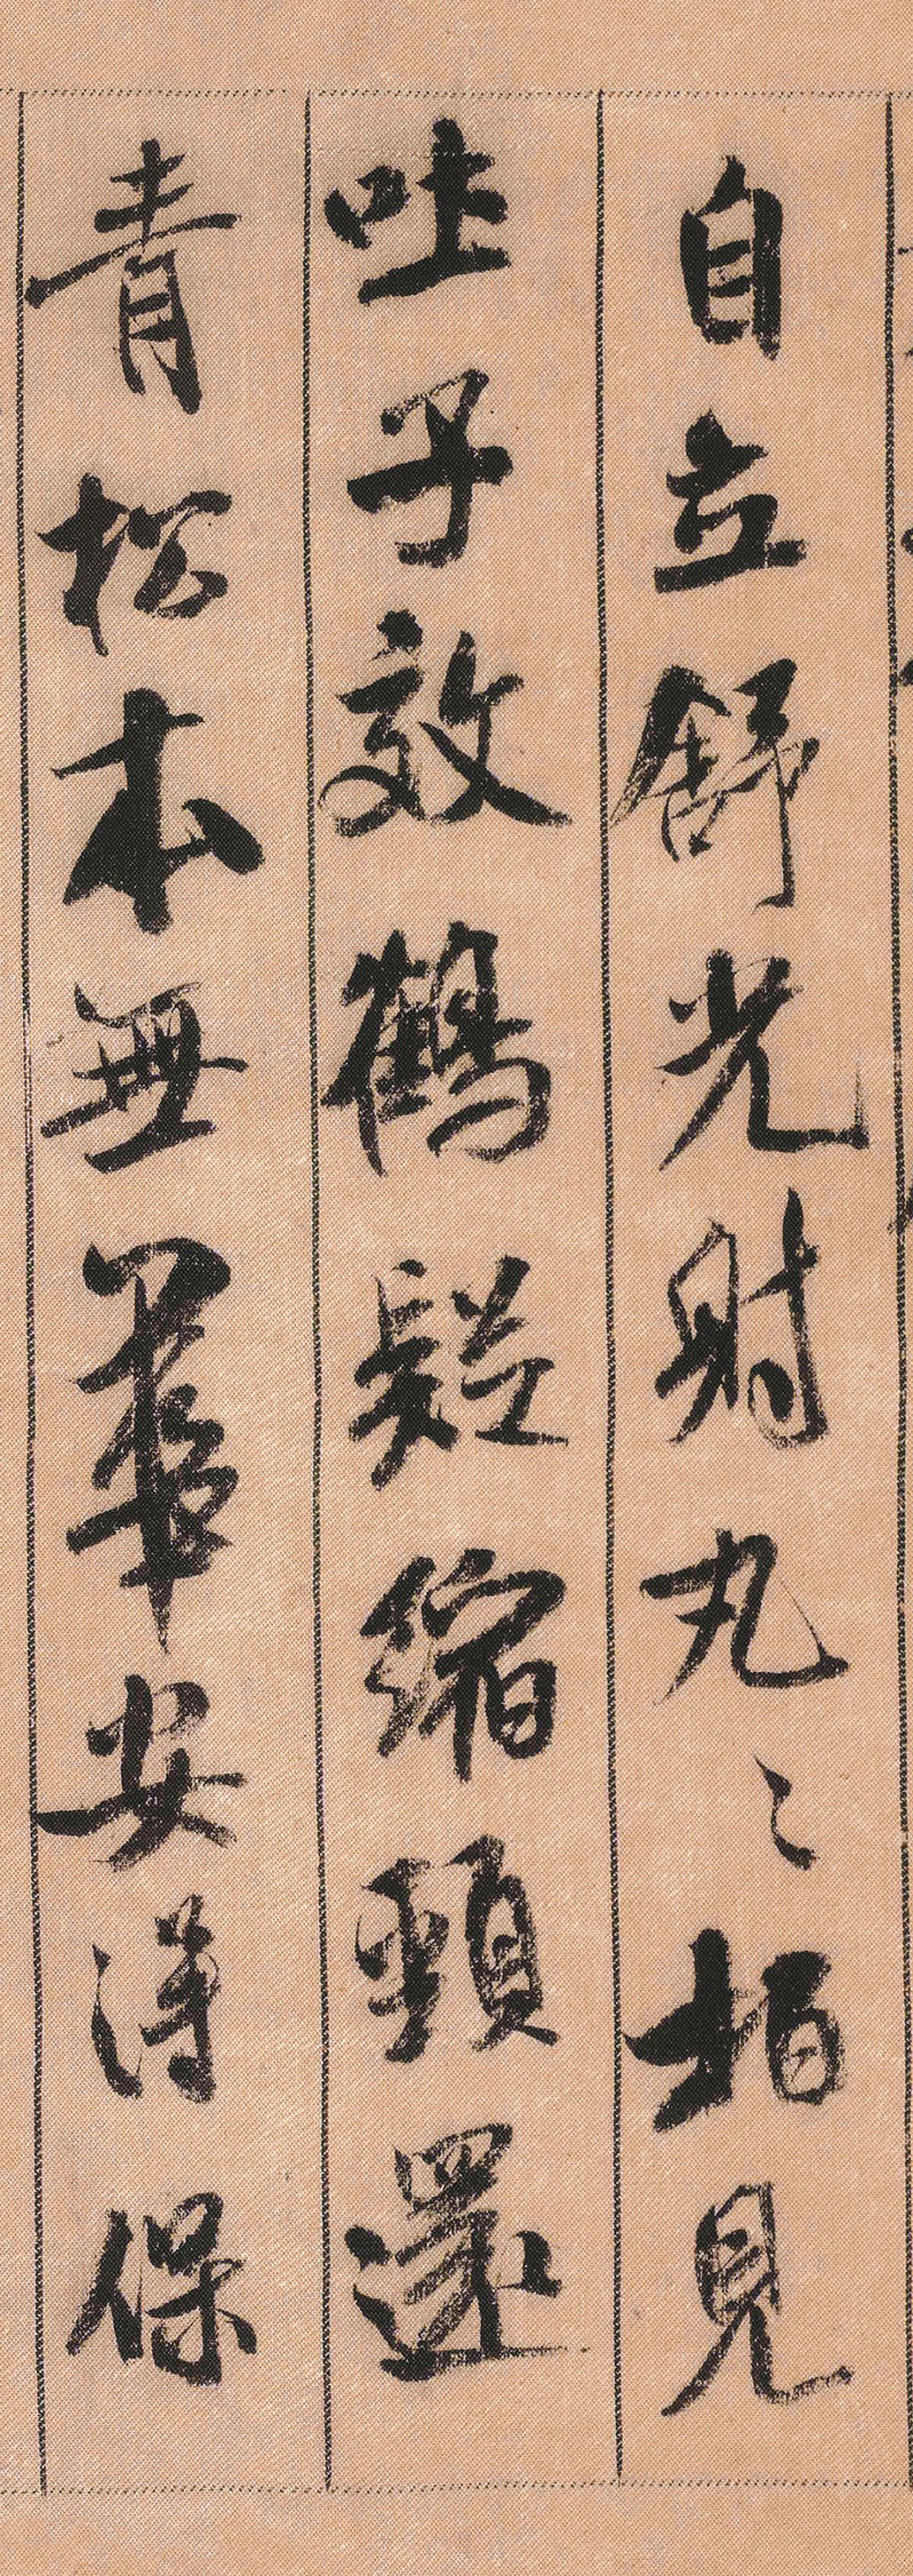 自立舒光射丸〻柏見
吐子效鶴疑縮頸還
青松本無華安得保